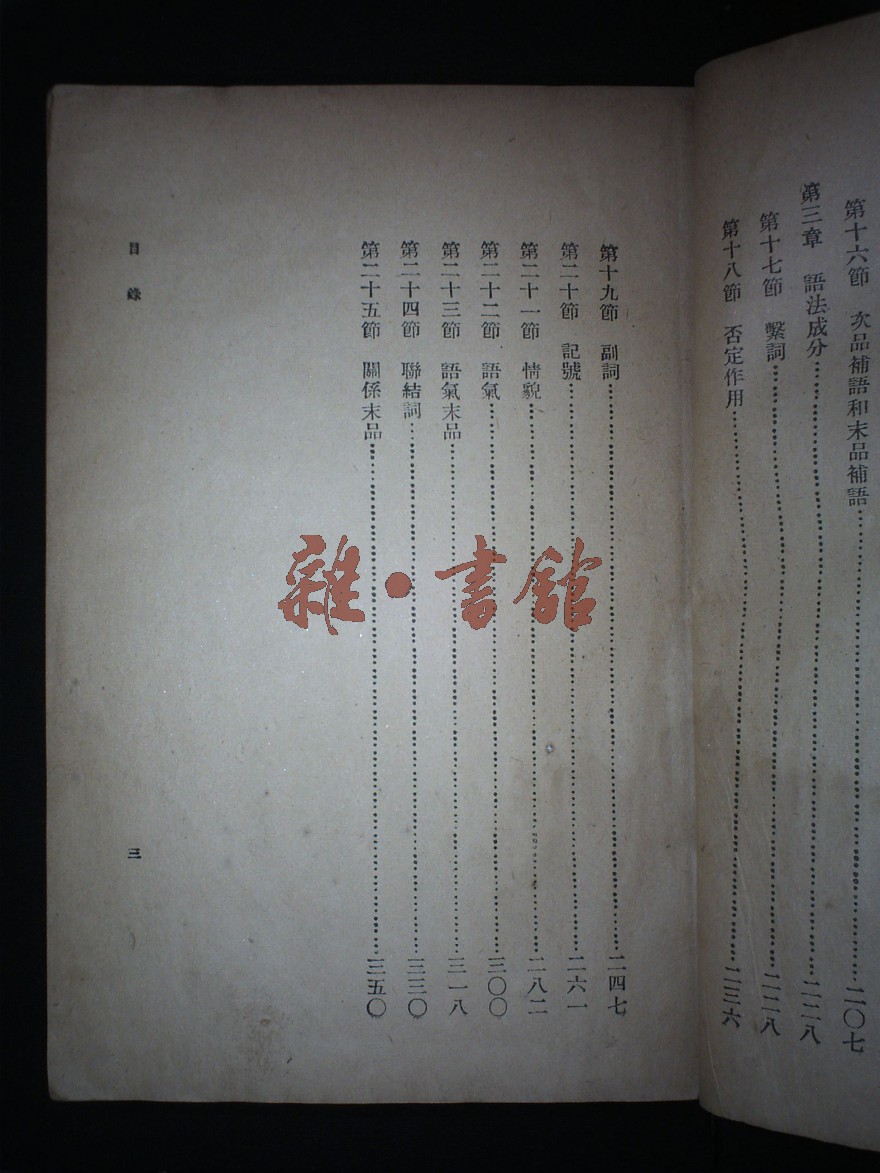 第十六節　次品補語和末品補語……二〇七
第三章　語法成分……二二八
第十七節　繫詞……二二八
第十八節　否定作用……二三六
第十九節　副詞……二四七
第二十節　記號……二六一
第二十一節　情貌……二八二
第二十二節　語氣……三〇〇
第二十三節　語氣末品……三一八
第二十四節　聯結詞……三三〇
第二十五節　關係末品……三五〇
目錄
三
雜·書館